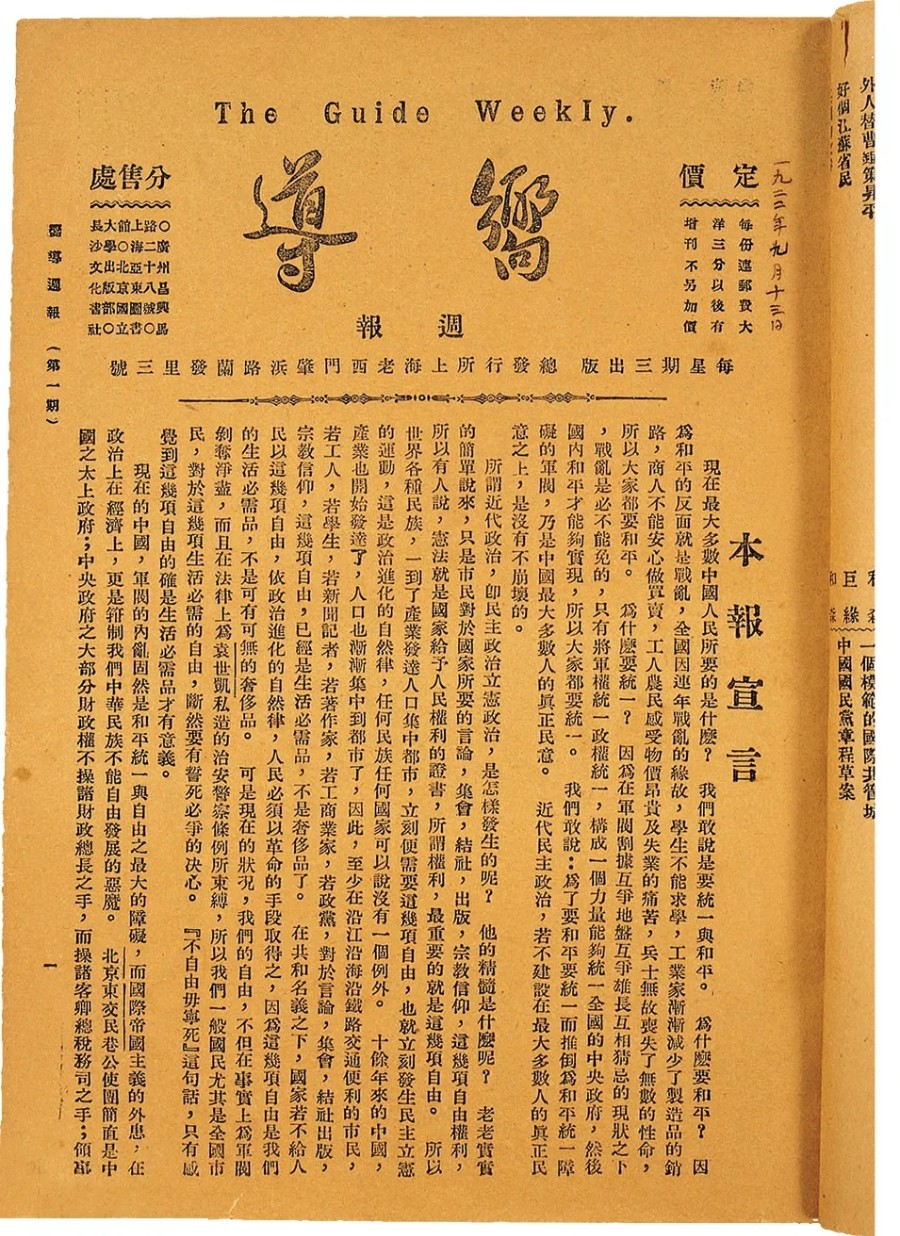 The Guide Weekly.
嚮導
週報
定價
每份連郵費大
洋三分以後有
增刊不另加價
一九二二年九月十三日
分售處
○廣州昌興馬
路二十八號○
上海亞東圖書
館○北京國立
大學出版部○
長沙文化書社
每星期三出版 總發行所上海老西門肇浜路蘭發里三號
本報宣言
現在最大多數中國人民所要的是什麽? 我們敢說是要統一與和平。 爲什麽要和平? 因
爲和平的反面就是戰亂,全國因連年戰亂的緣故,學生不能求學,工業家漸漸減少了製造品的銷
路,商人不能安心做買賣,工人農民感受物價昂貴及失業的痛苦,兵士無故喪失了無數的性命,
所以大家都要和平。 爲什麽要統一? 因爲在軍閥割據互爭地盤互爭雄長互相猜忌的現狀之下
,戰亂是必不能免的,只有將軍權統一政權統一,構成一個力量能夠統一全國的中央政府,然後
國內和平才能夠實現,所以大家都要統一。 我們敢說:爲了要和平要統一而推倒爲和平統一障
礙的軍閥,乃是中國最大多數人的真正民意。 近代民主政治,若不建設在最大多數人的眞正民
意之上,是沒有不崩壞的。
所謂近代政治,卽民主政治立憲政治,是怎樣發生的呢? 他的精髓是什麽呢? 老老實實
的簡單說來,只是市民對於國家所要的言論,集會,結社,出版,宗教信仰,這幾項自由權利,
所以有人說,憲法就是國家給予人民權利的證書,所謂權利,最重要的就是這幾項自由。 所以
世界各種民族,一到了產業發達人口集中都市,立刻便需要這幾項自由,也就立刻發生民主立憲
的運動,這是政治進化的自然律,任何民族任何國家可以說沒有一個例外。 十餘年來的中國,
產業也開始發達了,人口也漸漸集中到都市了,因此,至少在沿江沿海沿鐵路交通便利的市民,
若工人,若學生,若新聞記者,若著作家,若工商業家,若政黨,對於言論,集會,結社出版,
宗教信仰,這幾項自由,已經是生活必需品,不是奢侈品了。 在共和名義之下,國家若不給人
民以這幾項自由,依政治進化的自然律,人民必須以革命的手段取得之,因爲這幾項自由是我們
的生活必需品,不是可有可無的奢侈品。 可是現在的狀況,我們的自由,不但在事實上爲軍閥
剝奪淨盡,而且在法律上爲袁世凱私造的治安警察條例所束縛,所以我們一般國民尤其是全國市
民,對於這幾項生活必需的自由,斷然要有誓死必爭的决心。 『不自由毋寧死』這句話,只有感
覺到這幾項自由的確是生活必需品才有意義。
現在的中國,軍閥的內亂固然是和平統一與自由之最大的障礙,而國際帝國主義的外患,在
政治上在經濟上,更是箝制我們中華民族不能自由發展的惡魔。 北京東交民巷公使團簡直是中
國之太上政府;中央政府之大部分財政權不操諸財政總長之手,而操諸客卿總稅務司之手;領事
嚮導週報(第一期)
一
好個江蘇省民
一個模範的國際共管城
中國國民黨章程草案